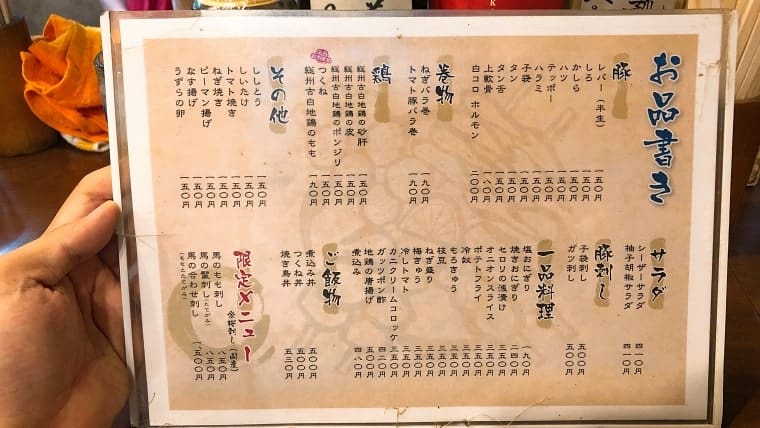 お品書き
豚
レバー（半生） 一五〇円
しろ 一五〇円
かしら 一五〇円
ハツ 一五〇円
テッポー 一五〇円
ハラミ 一五〇円
子袋 一五〇円
タン 一五〇円
タン舌 一五〇円
上軟骨 一八〇円
白コロ ホルモン 二〇〇円
巻物
ねぎバラ巻 一九〇円
トマト豚バラ巻 一九〇円
鶏
総州古白地鶏の砂肝 一五〇円
総州古白地鶏の皮 一五〇円
総州古白地鶏のポンジリ 一五〇円
つくね 一五〇円
総州古白地鶏のもも 一九〇円
その他
ししとう 一五〇円
しいたけ 一五〇円
トマト焼き 一五〇円
ねぎ焼き 一五〇円
ピーマン揚げ 一五〇円
なす揚げ 一五〇円
うずらの卵 一五〇円
サラダ
シーザーサラダ 四一〇円
柚子胡椒サラダ 四一〇円
豚刺し
子袋刺し 五〇〇円
ガツ刺し 五〇〇円
一品料理
塩おにぎり 一九〇円
焼きおにぎり 二四〇円
セロリの浅漬け 三五〇円
オニオンスライス 三五〇円
ポテトフライ 三五〇円
冷奴 三五〇円
もろきゅう 三五〇円
枝豆 三五〇円
ねぎ盛り 三五〇円
梅きゅう 三五〇円
冷しトマト 三五〇円
カニクリームコロッケ 三五〇円
ガッツポン酢 四二〇円
地鶏の唐揚げ
煮込み 四八〇円
ご飯物
煮込み丼 五〇〇円
つくね丼 五〇〇円
焼き鳥丼 五三〇円
限定メニュー
桜刺し（国産）
馬のもも刺し 八五〇円
馬の鬣刺し（たてがみ） 八五〇円
馬の合わせ刺し（ももとたてがみ） 一、五〇〇円